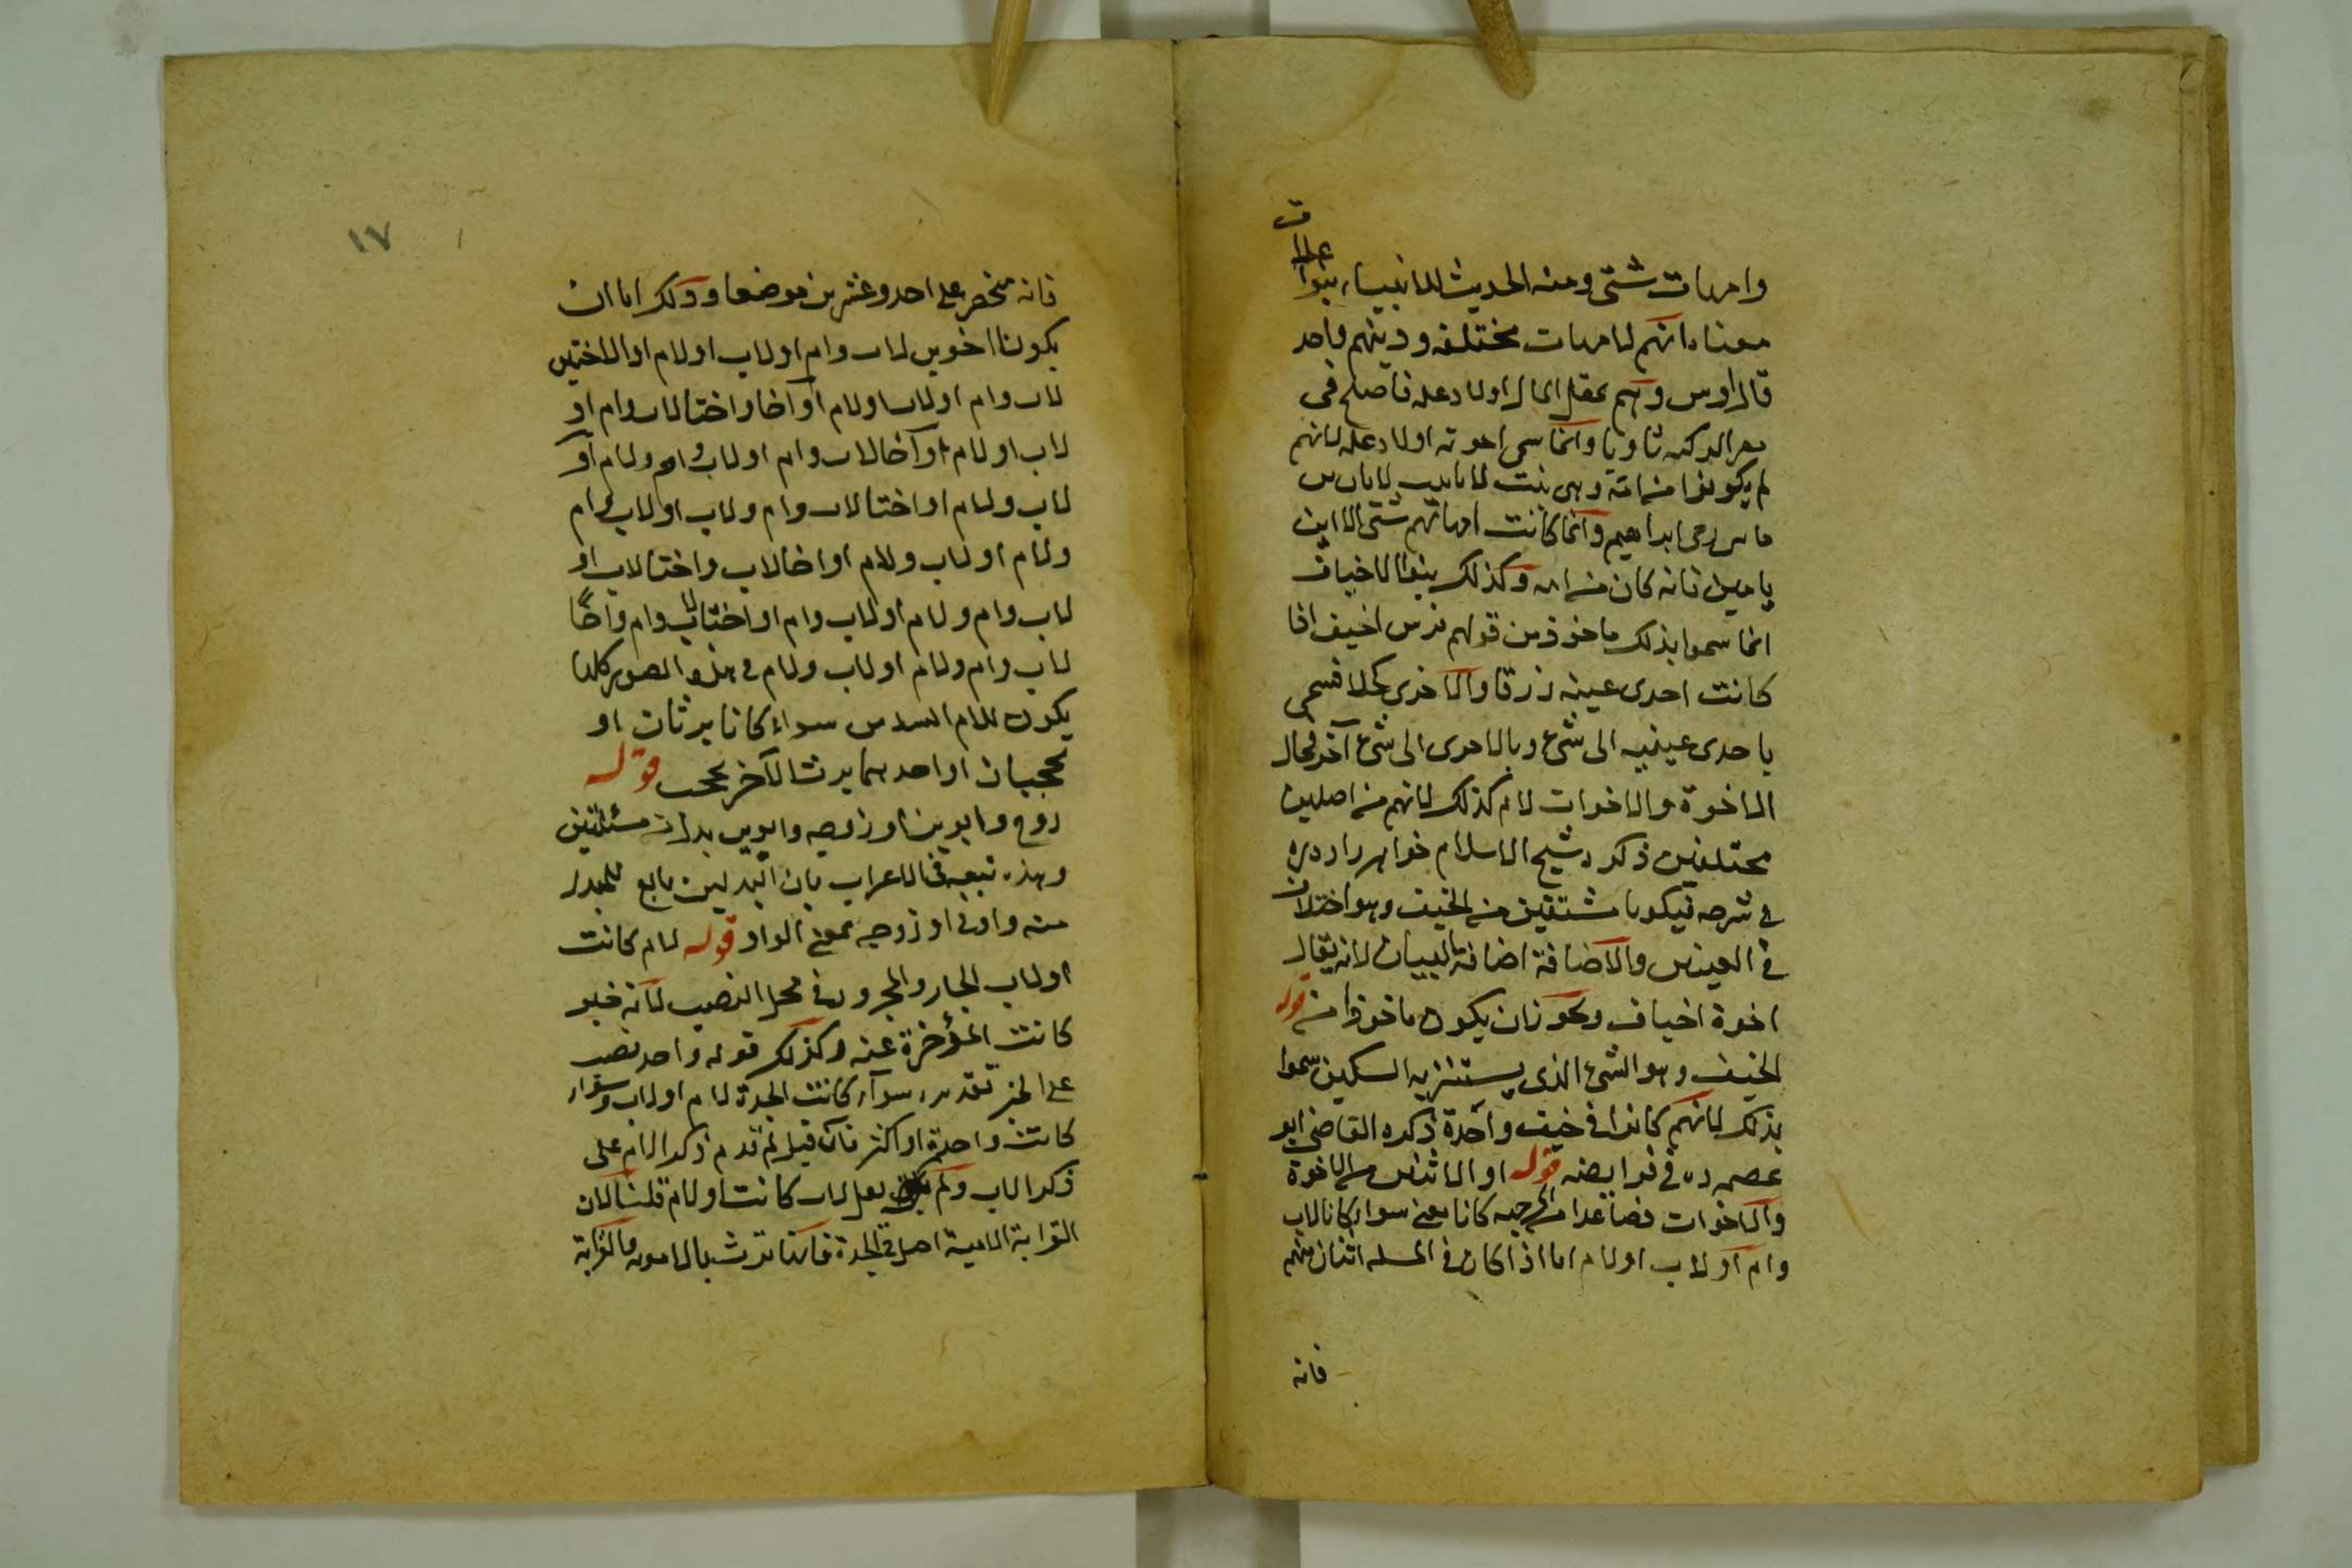 وامهات شتى ومنه الحديث الانبياء بنوا علات
معناه انهم لامهات مختلفة ودينهم واحد
قال اوس وهم لمقل المال اولاد علة
وانما سمى اخوته اولاد علة لانهم
لم يكونوا من امه وهى بنت
ابراهيم وانما كانت امهاتهم شتى الا ابن
يامين فانه كان من امه وكذلك بنوا الاخياف
انما سموا بذلك ماخوذ من قولهم فرس اخيف اذا
كانت احدى عينيه زرقا والاخرى كحلا فسمى
باحدى عينيه الى شئ وبالاخرى الى شئ آخر فحال
الاخوة والاخوات لام كذلك لانهم من اصلين
مختلفين ذكره شيخ الاسلام خواهر زاده
فى شرحه فيكون مشتقين من الخيف وهو اختلاف
فى العينين والاضافة اضافة البيان لانه يقال
اخوة اخياف ويجوز ان يكون ماخوذا من قوله
الخيف وهو الشئ الذى يستتر به السكين سموا
بذلك لانهم كانوا فى خيف واحدة ذكره القاضى ابو
فى فرايضه قوله او الاثنين من الاخوة
والاخوات فصاعدا من اى جهة كانا يعنى سواء كانا لاب
وام او لاب او لام اما اذا كان فى المسئلة اثنان منهم
فانه
١٧
فانه منحصر على احد وعشرين موضعا وذلك اما ان
يكونا اخوين لاب وام او لاب او لام او الاختين
لاب وام او لاب او لام او اخا واختا لاب وام او
لاب او لام او اخا لاب وام او لاب وام ولام او
لاب ولام او اختا لاب وام ولاب او لاب وام
ولام او لاب ولام او اخا لاب واختا لاب او
لاب وام ولام او لاب وام او اختا لاب وام واخا
لاب وام ولام او لاب ولام فى هذه الصور كلها
يكون للام السدس سواء كانا يرثان او
يحجبان او احدهما يرث الآخر يحجب قوله
زوج وابوين او زوجه وابوين بدل من مسئلتين
وهذه تبعيه فى الاعراب بان البدلين تابع للمبدل
منه واو فى او زوجه بمعنى الواو قوله لام كانت
او لاب الجار والمجرور فى محل النصب لانه خبر
كانت المؤخرة عنه وكذلك قوله واحد نصب
على الخبر تقديره سواء كانت الجدة لام او لاب وسواء
كانت واحدة او اكثر فان قيل لم قدم ذكر الام على
ذكر الاب ولم يقل لاب كانت او لام قلنا لان
القرابة الامية اصل فى الجدة فانها ترث بالامومه والقرابة